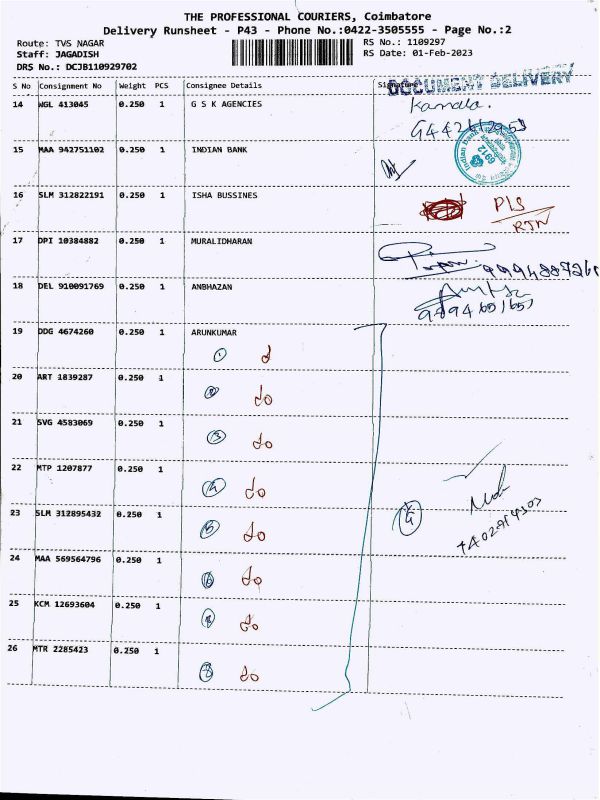 THE PROFESSIONAL COURIERS, Coimbatore
Delivery Runsheet - P43 - Phone No.:0422-3505555 - Page No.:2
Route: TVS NAGAR
Staff: JAGADISH
DRS No.: DCJB110929702
RS No.: 1109297
RS Date: 01-Feb-2023
S No Consignment No Weight PCS Consignee Details Signature
DOCUMENT DELIVERY
14 WGL 413045 0.250 1 G S K AGENCIES Kamala.
15 MAA 942751102 0.250 1 INDIAN BANK
16 SLM 312822191 0.250 1 ISHA BUSSINES Pls
RTN
17 DPI 10384882 0.250 1 MURALIDHARAN
18 DEL 910091769 0.250 1 ANBHAZAN
9894651651
19 DDG 4674260 0.250 1 ARUNKUMAR
1
20 ART 1839287 0.250 1
2 do
21 SVG 4583069 0.250 1
3 do
22 MTP 1207877 0.250 1
4 do
23 SLM 312895432 0.250 1
5 do
24 MAA 569564796 0.250 1
6 do
25 KCM 12693604 0.250 1
do
26 MTR 2285423 0.250 1
8 do